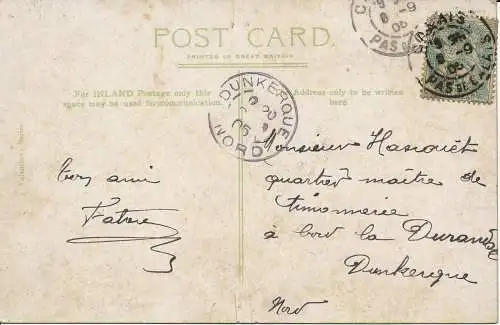 POST CARD.
PRINTED IN GREAT BRITAIN
For INLAND Postage only this
space may be used for communication.
Address only to be written
here.
CALAIS
PAS DE CALAIS
DUNKERQUE
NORD
ton ami
Monsieur Hasquet
quartier maître de
timonnerie
à bord la Durance
Dunkerque
Nord